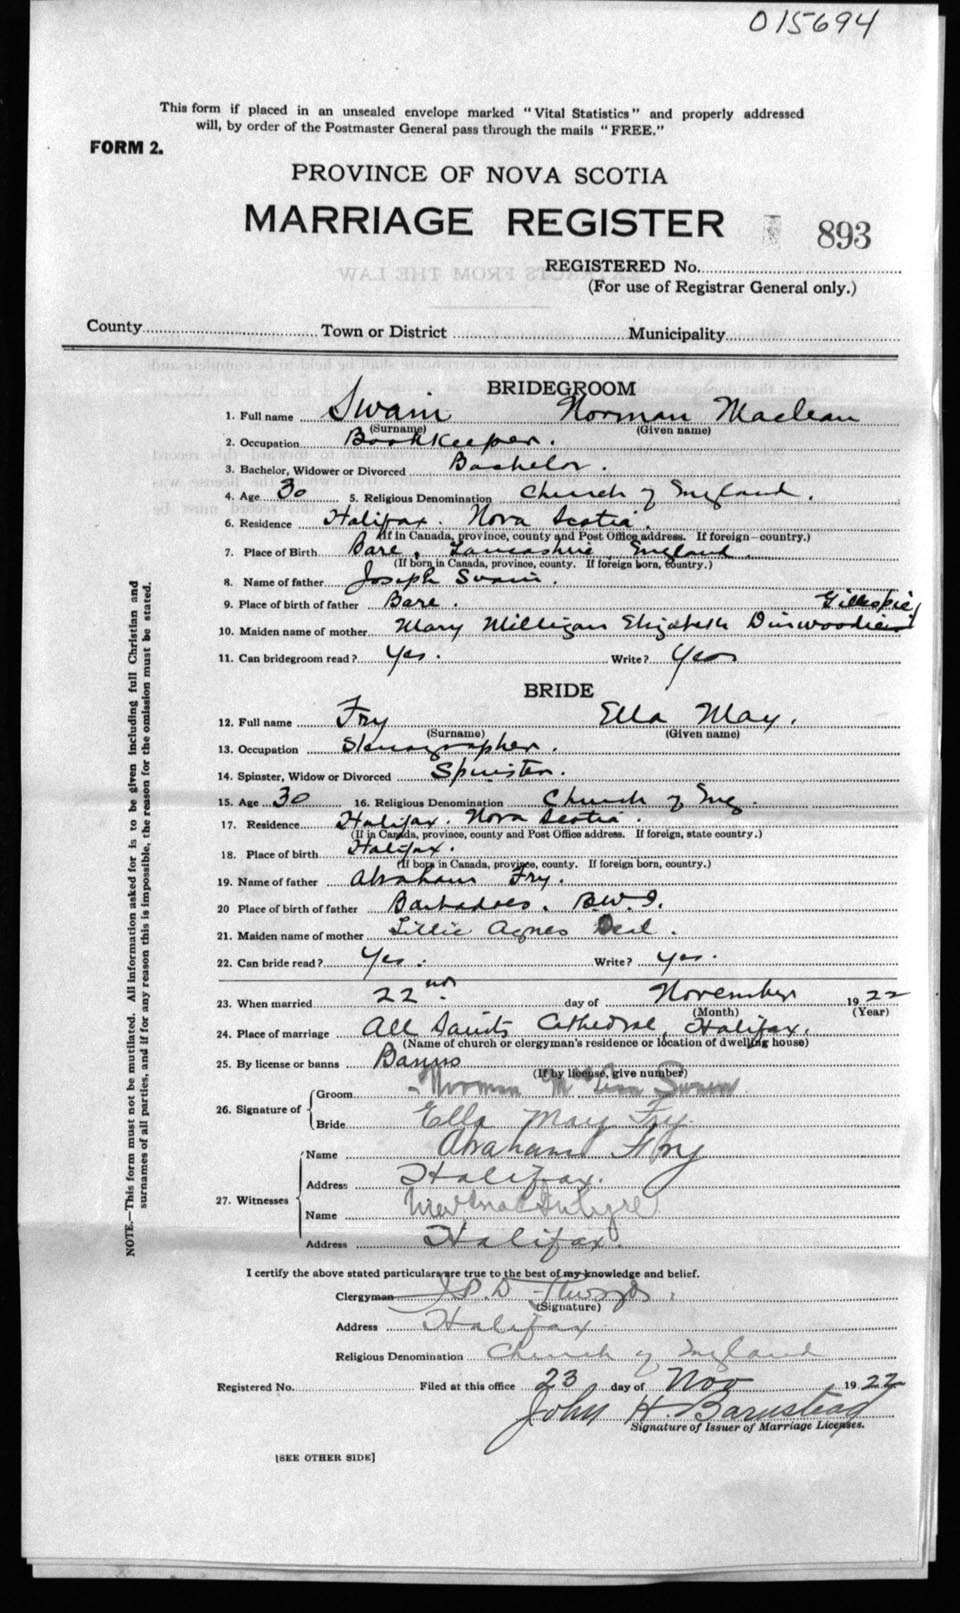 015694
This form if placed in an unsealed envelope marked "Vital Statistics" and properly addressed
will, by order of the Postmaster General pass through the mails "FREE."
FORM 2.
PROVINCE OF NOVA SCOTIA
MARRIAGE REGISTER 893
REGISTERED No.
(For use of Registrar General only.)
County Town or District Municipality
BRIDEGROOM
1. Full name Swain Norman Maclean
(Surname) (Given name)
2. Occupation Bookkeeper.
3. Bachelor, Widower or Divorced Bachelor.
4. Age 30 5. Religious Denomination Church of England.
6. Residence Halifax. Nova Scotia.
(If in Canada, province, county and Post Office address. If foreign—country.)
7. Place of Birth Bare, Lancashire, England
(If born in Canada, province, county. If foreign born, country.)
8. Name of father Joseph Swain.
9. Place of birth of father Bare. Gillespie
10. Maiden name of mother Mary Milligan Elizabeth Dinwoodie
11. Can bridegroom read? Yes. Write? Yes
BRIDE
12. Full name Fry Ella May.
(Surname) (Given name)
13. Occupation Stenographer.
14. Spinster, Widow or Divorced Spinster.
15. Age 30 16. Religious Denomination Church of Eng.
17. Residence Halifax. Nova Scotia.
(If in Canada, province, county and Post Office address. If foreign, state country.)
18. Place of birth Halifax.
(If born in Canada, province, county. If foreign born, country.)
19. Name of father Abraham Fry.
20 Place of birth of father Barbadoes. B.W.I.
21. Maiden name of mother Lillie Agnes Deal.
22. Can bride read? Yes. Write? Yes.
23. When married 22nd day of November 1922
(Month) (Year)
24. Place of marriage All Saints Cathedral, Halifax.
(Name of church or clergyman's residence or location of dwelling house)
25. By license or banns Banns
(If by license, give number)
26. Signature of Groom Norman McLean Swain
Bride Ella May Fry.
27. Witnesses Name Abraham Fry
Address Halifax.
Name
Address Halifax.
I certify the above stated particulars are true to the best of my knowledge and belief.
Clergyman
(Signature)
Address Halifax
Religious Denomination Church of England
Registered No. Filed at this office 23 day of Nov 1922
John H. Barnstead
Signature of Issuer of Marriage Licenses.
[SEE OTHER SIDE]
NOTE.—This form must not be mutilated. All information asked for is to be given including full Christian and
surnames of all parties, and if for any reason this is impossible, the reason for the omission must be stated.